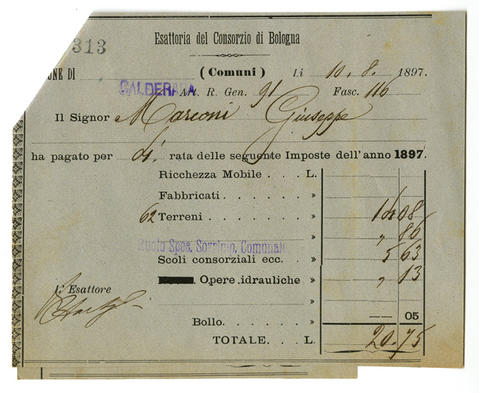 313
Esattoria del Consorzio di Bologna
ONE DI CALDERARA (Comuni) Lì 10. 8. 1897.
Art. R. Gen. 91 Fasc. 116
Il Signor Marconi Giuseppe
ha pagato per 4ª rata delle seguente Imposte dell'anno 1897.
Ricchezza Mobile . . . L.
Fabbricati . . . . . »
62 Terreni . . . . . » 08
Comunali » " 86
Scoli consorziali ecc. . » 5 63
Opere idrauliche » " 13
»
L'Esattore
Bollo. . . . . » — 05
TOTALE. . . L. 20.75